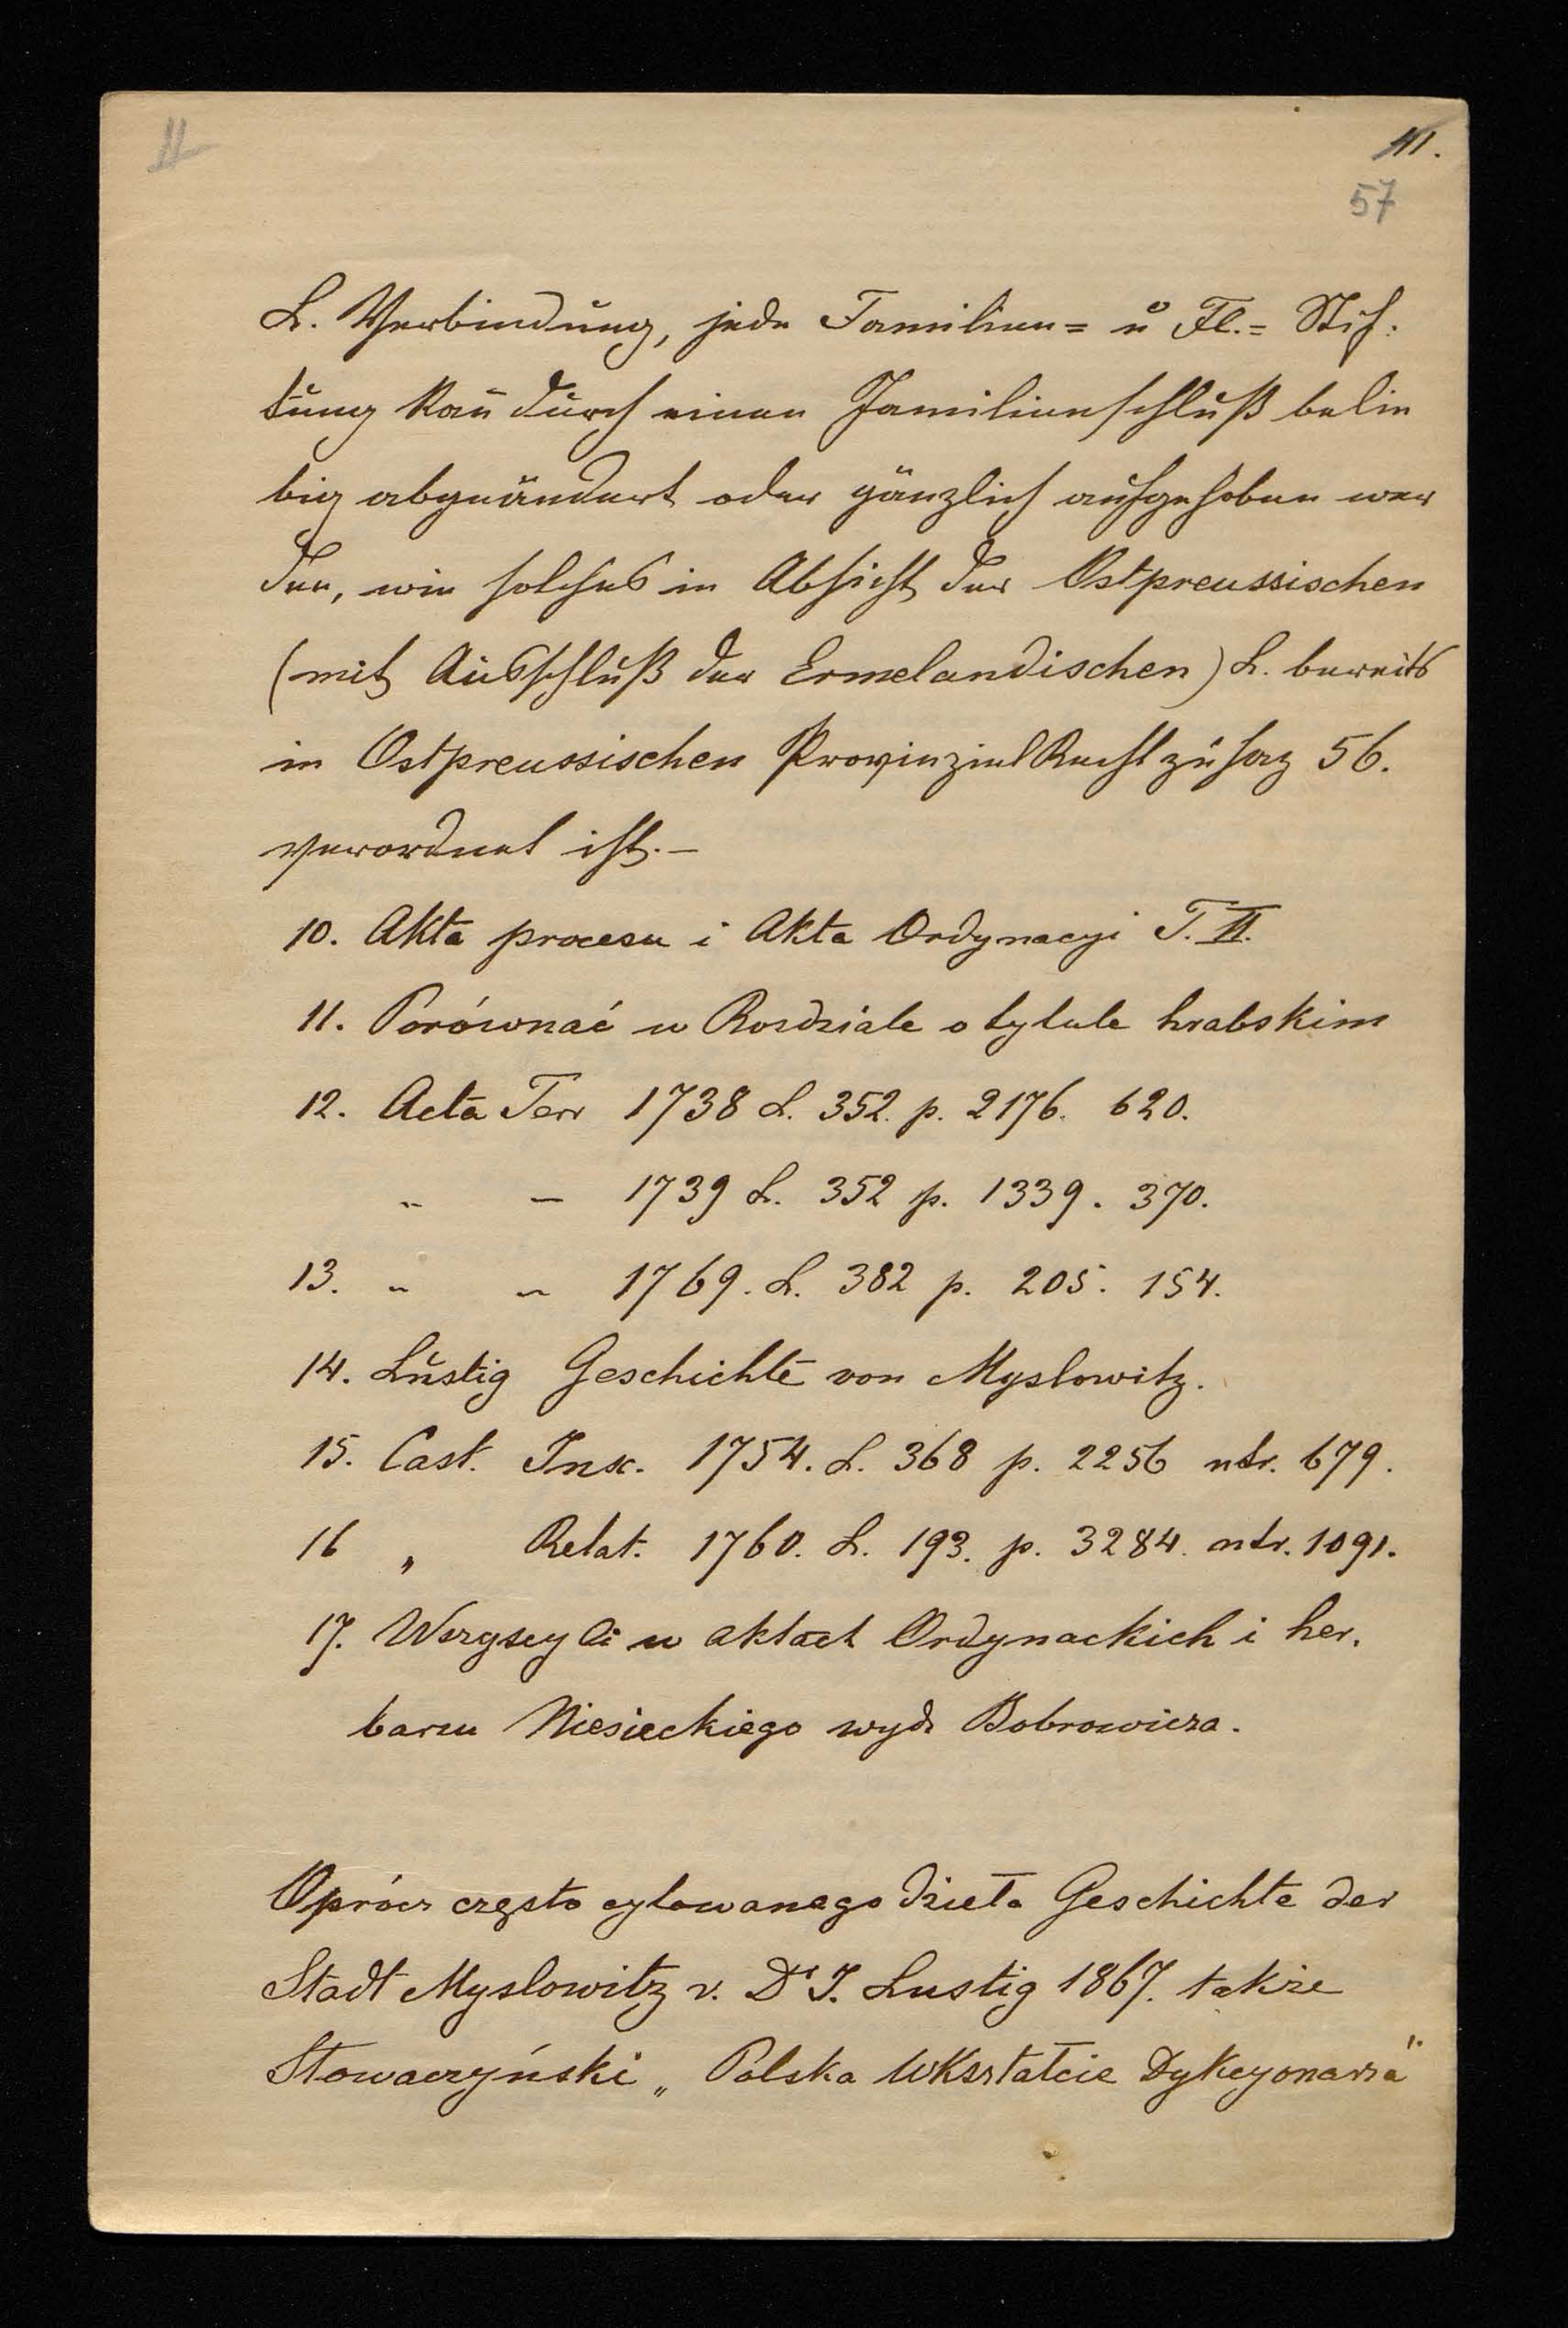 II
III.
57
L. Verbindung, jede Familien= u Fl.= Stif:
tung kan̄ durch einen Familienschluß belie
big abgeändert oder gänzlich aufgehoben wer
den, wie solches in Absicht der Ostpreussischen
(mit Ausschluß der Ermelandischen) L. bereits
in Ostpreussischen Provinzial Recht zusaz 56.
verordnet ist. –
10. Akta procesu i Akta Ordynacyi T. II.
11. Porównać w Rozdziale o tytule hrabskim
12. Acta Terr 1738 L. 352. p. 2176. 620.
" – 1739 L. 352 p. 1339. 370.
13. " " 1769. L. 382 p. 205. 154.
14. Lustig Geschichte von Myslowitz.
15. Cast. Insc. 1754. L. 368 p. 2256 ntr. 679.
16 " Relat. 1760. L. 193. p. 3284. ntr. 1091.
17. Wszyscy ci w aktach Ordynackich i her.
barzu Niesieckiego wyd. Bobrowicza.
Oprócz często cytowanego dzieła Geschichte der
Stadt Myslowitz v. Dr J. Lustig 1867. także
Słowaczyński „Polska wkształcie Dykcyonarza"